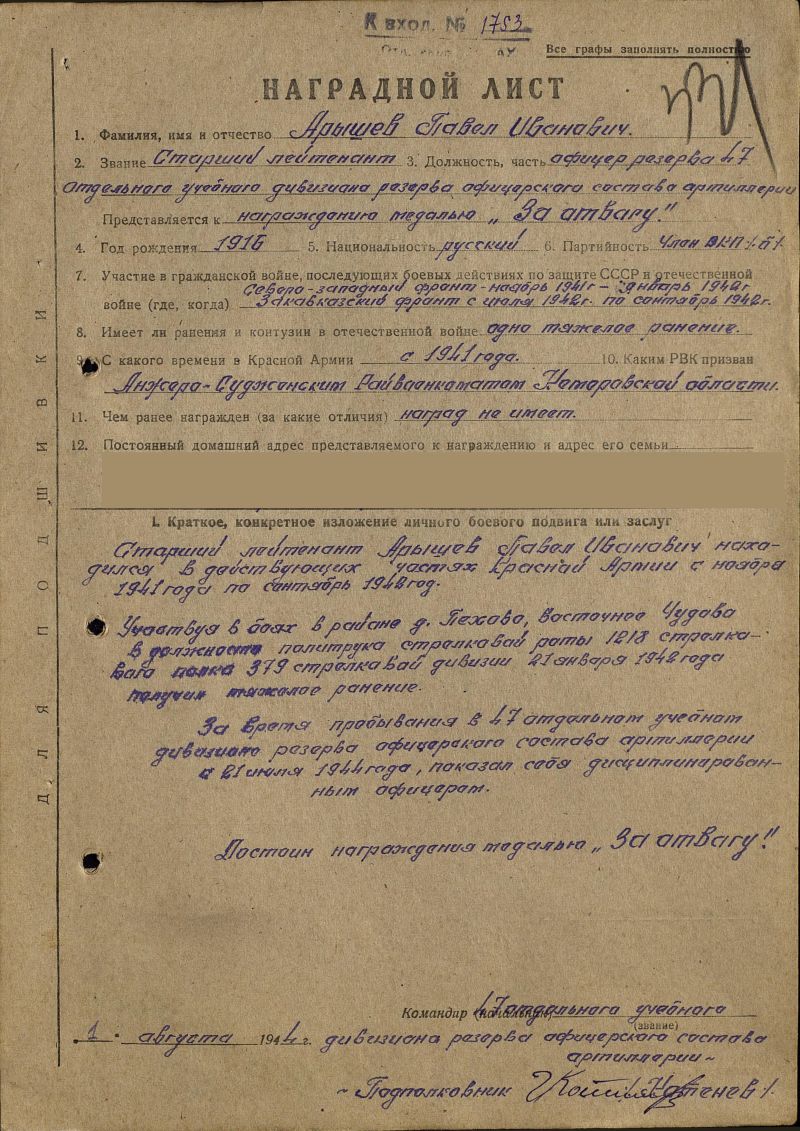 К вход. № 1753
Все графы заполнять полностью
НАГРАДНОЙ ЛИСТ
1. Фамилия, имя и отчество Арышев Павел Иванович.
2. Звание Старший лейтенант 3. Должность, часть офицер резерва 47
отдельного учебного дивизиона резерва офицерского состава артиллерии
Представляется к награждению медалью „За отвагу."
4. Год рождения 1916 5. Национальность русский 6. Партийность член ВКП/б/
7. Участие в гражданской войне, последующих боевых действиях по защите СССР и отечественной
Северо-западный фронт-ноябрь 1941г - январь 1942г
войне (где, когда) Закавказский фронт с июля 1942г. по сентябрь 1942г.
8. Имеет ли ранения и контузии в отечественной войне одно тяжелое ранение.
9. С какого времени в Красной Армии с 1941 года. 10. Каким РВК призван
Анжеро-Судженским Райвоенкоматом Кемеровской области.
11. Чем ранее награжден (за какие отличия) наград не имеет.
12. Постоянный домашний адрес представляемого к награждению и адрес его семьи
I. Краткое, конкретное изложение личного боевого подвига или заслуг
Старший лейтенант Арышев Павел Иванович нахо-
дился в действующих частях Красной Армии с ноября
1941 года по сентябрь 1942 год.
Участвуя в боях в районе д. Пехово, восточнее Чудова
в должности политрука стрелковой роты 1213 стрелко-
вого полка 379 стрелковой дивизии 21 января 1942 года
получил тяжелое ранение.
За время пребывания в 47 отдельном учебном
дивизионе резерва офицерского состава артиллерии
с 21 июля 1944 года, показал себя дисциплинирован-
ным офицером.
Достоин награждения медалью „За отвагу"
ДЛЯ ПОДШИВКИ
Командир (начальник) 47 отдельного учебного
(звание)
1 августа 1944 г. дивизиона резерва офицерского состава
артиллерии ~
~ Подполковник